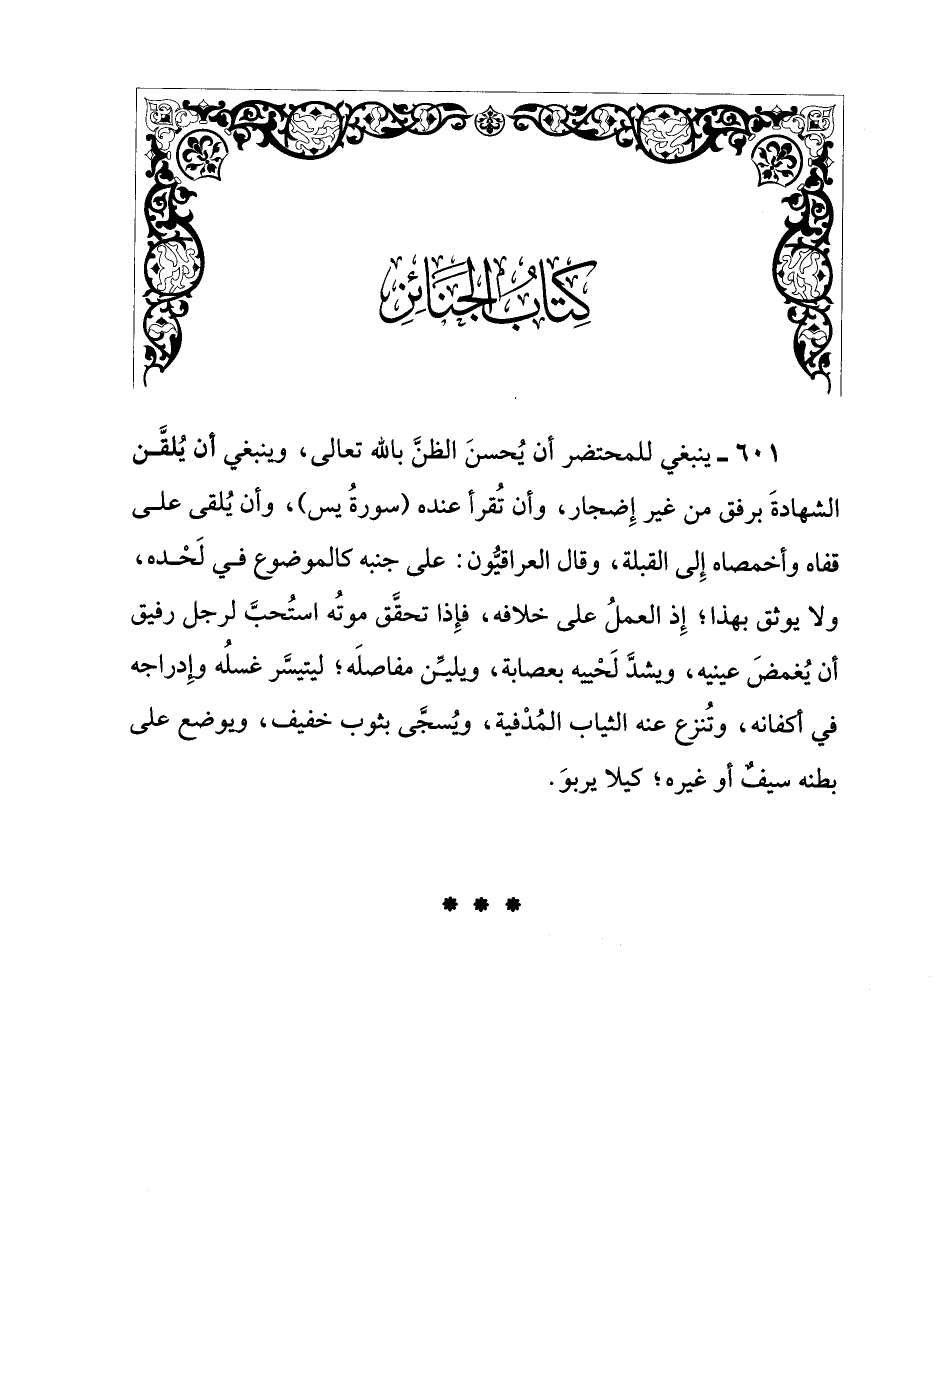 كِتَابُ الجَنَائِزِ
٦٠١ ـ ينبغي للمحتضر أن يُحسنَ الظنَّ بالله تعالى، وينبغي أن يُلقَّـن
الشهادةَ برفق من غير إضجار، وأن تُقرأ عنده (سورةُ يس)، وأن يُلقى علـى
قفاه وأخمصاه إلى القبلة، وقال العراقيُّون: على جنبه كالموضوع فـي لَحْـده،
ولا يوثق بهذا؛ إذ العملُ على خلافه، فإذا تحقَّق موتُه استُحبَّ لرجل رفيق
أن يُغمضَ عينيه، ويشدَّ لَحْييه بعصابة، ويليِّن مفاصلَه؛ ليتيسَّر غسلُه وإدراجه
في أكفانه، وتُنزع عنه الثياب المُدْفية، ويُسجَّى بثوب خفيف، ويوضع على
بطنه سيفٌ أو غيره؛ كيلا يربوَ.
* * *